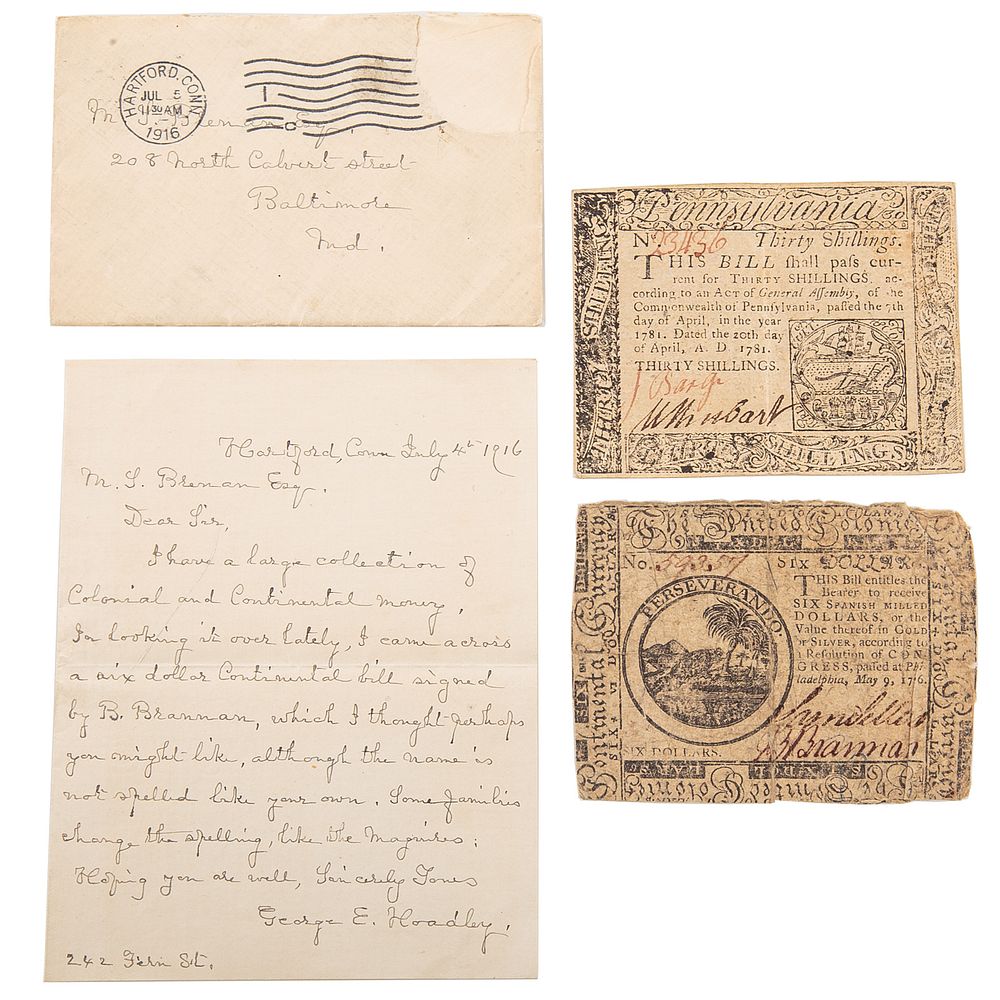 HARTFORD, CONN.
JUL 5
11 30 AM
1916
M. S. Brenan Esq.
208 North Calvert street
Baltimore
Md.
Hartford, Conn July 4th 1916
M. S. Brenan Esq.
Dear Sir,
I have a large collection of
Colonial and Continental money,
In looking it over lately, I came across
a six dollar Continental bill signed
by B. Brannan, which I thought perhaps
you might like, although the name is
not spelled like your own. Some families
change the spelling, like the Maguires;
Hoping you are well, Sincerely Yours
George E. Hoadley.
242 Fern St.
Pennsylvania
XXX
THIRTY SHILLING
No 23436 Thirty Shillings.
THIS BILL shall pass cur-
rent for THIRTY SHILLINGS, ac-
cording to an ACT of General Assembly, of the
Commonwealth of Pennsylvania, passed the 7th
day of April, in the year
1781. Dated the 20th day
of April, A. D. 1781.
THIRTY SHILLINGS.
SHILLINGS
The United Colonies
Continental Currency
SIX DOLLARS
No. SIX DOLLARS.
PERSEVERANDO.
THIS Bill entitles the
Bearer to receive
SIX SPANISH MILLED
DOLLARS, or the
Value thereof in GOLD
or SILVER, according to
a Resolution of CON-
GRESS, passed at Phi-
ladelphia, May 9, 1776.
B Brannan
SIX DOLLARS.
The United Colonies
Continental Currency